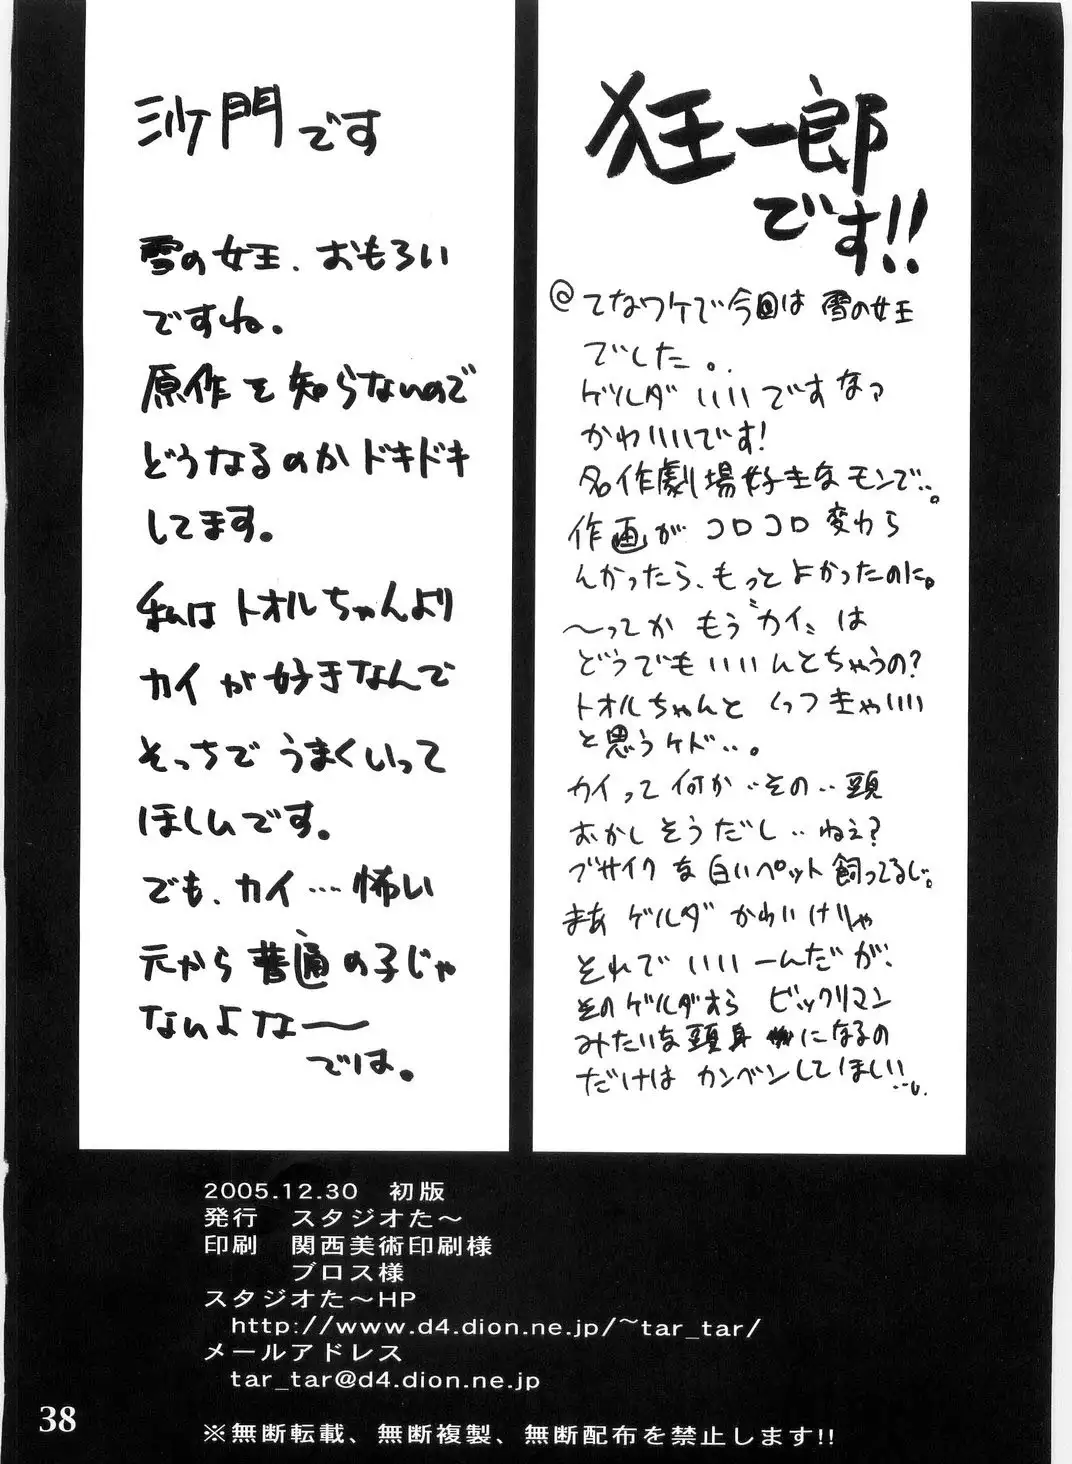 狂一郎
です!!
@てなワケで今回は雪の女王
でした。
ゲルダいいですなァ
かわいいです!
名作劇場好きなモンで…。
作画がコロコロ変わら
んかったら、もっとよかったのに。
〜ってかもう〝カイ〟は
どうでもいいんとちゃうの?
トオルちゃんとくっつきゃいい
と思うケド…。
カイって何か…その…頭
おかしそうだし…ねぇ?
ブサイクな白いペット飼ってるし。
まあゲルダかわいけりゃ
それでいいーんだが、
そのゲルダすらビックリマン
みたいな頭身になるの
だけはカンベンしてほしい…し。
沙門です
雪の女王、おもろい
ですね。
原作を知らないので
どうなるのかドキドキ
してます。
私はトオルちゃんより
カイが好きなんで
そっちでうまくいって
ほしいです。
でも、カイ…怖い
元から普通の子じゃ
ないよなー〜
では。
2005.12.30 初版
発行 スタジオた〜
印刷 関西美術印刷様
ブロス様
スタジオた〜HP
http://www.d4.dion.ne.jp/~tar_tar/
メールアドレス
tar_tar@d4.dion.ne.jp
38
※無断転載、無断複製、無断配布を禁止します!!